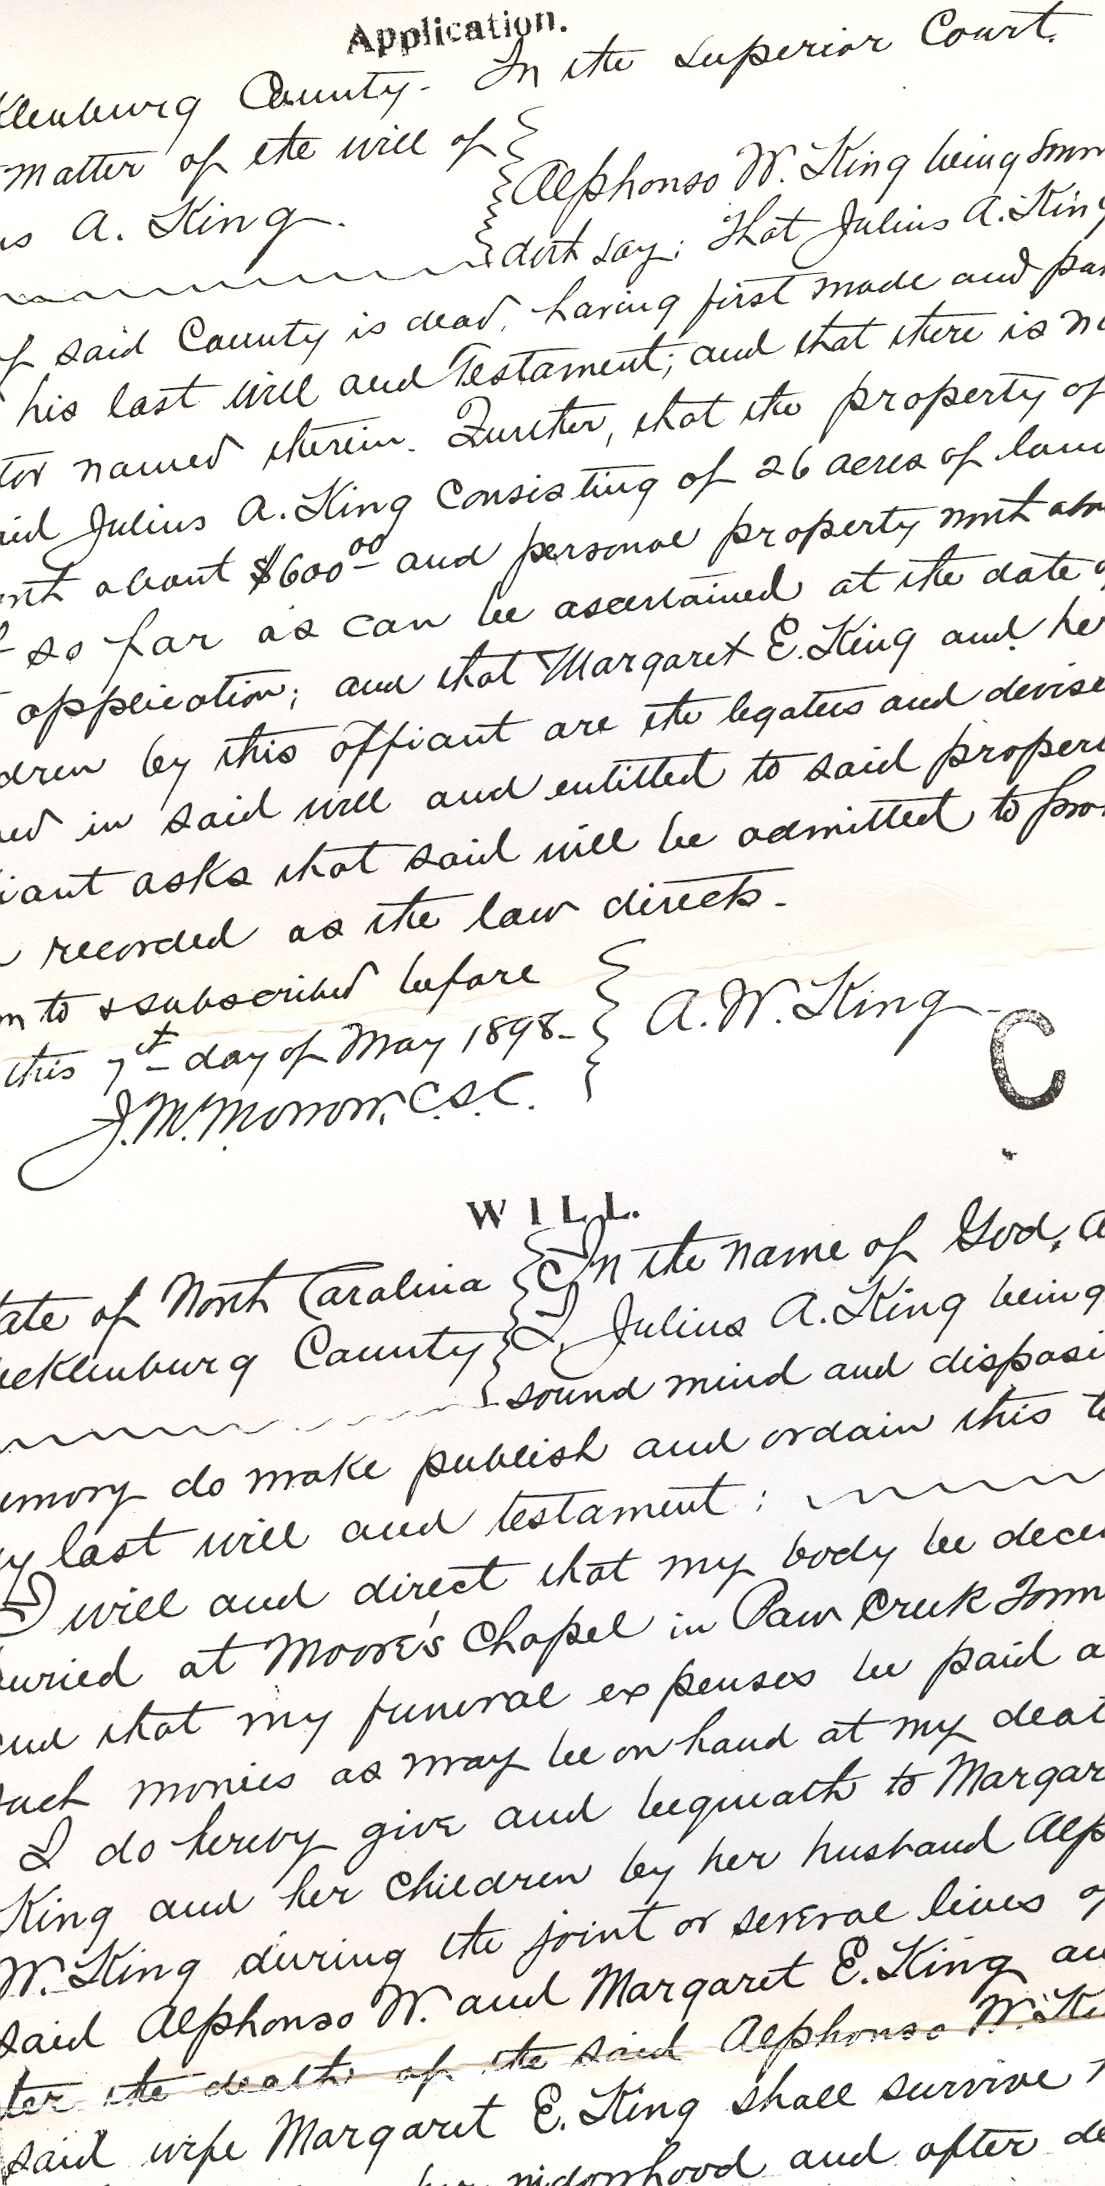 Application.
klenburg County. In the Superior Court.
Matter of the will of
us A. King.
Alphonso W. King being sworn
doth say; That Julius A. King
of said County is dead, having first made and
his last will and Testament; and that there is no
tor named therein. Further, that the property of
aid Julius A. King consisting of 26 acres of land
orth about $600.00 and personal property worth abou
so far as can be ascertained at the date o
application; and that Margaret E. King and her
dren by this affiant are the legatees and devise
ed in said will and entitled to said propert
iant asks that said will be admitted to pro
recorded as the law directs.
rn to & subscribed before
this 7th day of May 1898.
A. W. King
J. M. Morrow, C.S.C.
C
WILL.
tate of North Carolina
ecklenburg County
In the name of God, a
I, Julius A. King being
sound mind and disposi
emory do make publish and ordain this to
y last will and testament:
I will and direct that my body be decen
buried at Moore's Chapel in Paw Creek Town
and that my funeral expenses be paid
such monies as may be on hand at my deat
I do hereby give and bequeath to Margar
King and her children by her husband Alp
W. King during the joint or several lives of
said Alphonso W. and Margaret E. King an
ter the death of the said Alphonso W. Ki
said wife Margaret E. King shall survive
her widowhood and after de